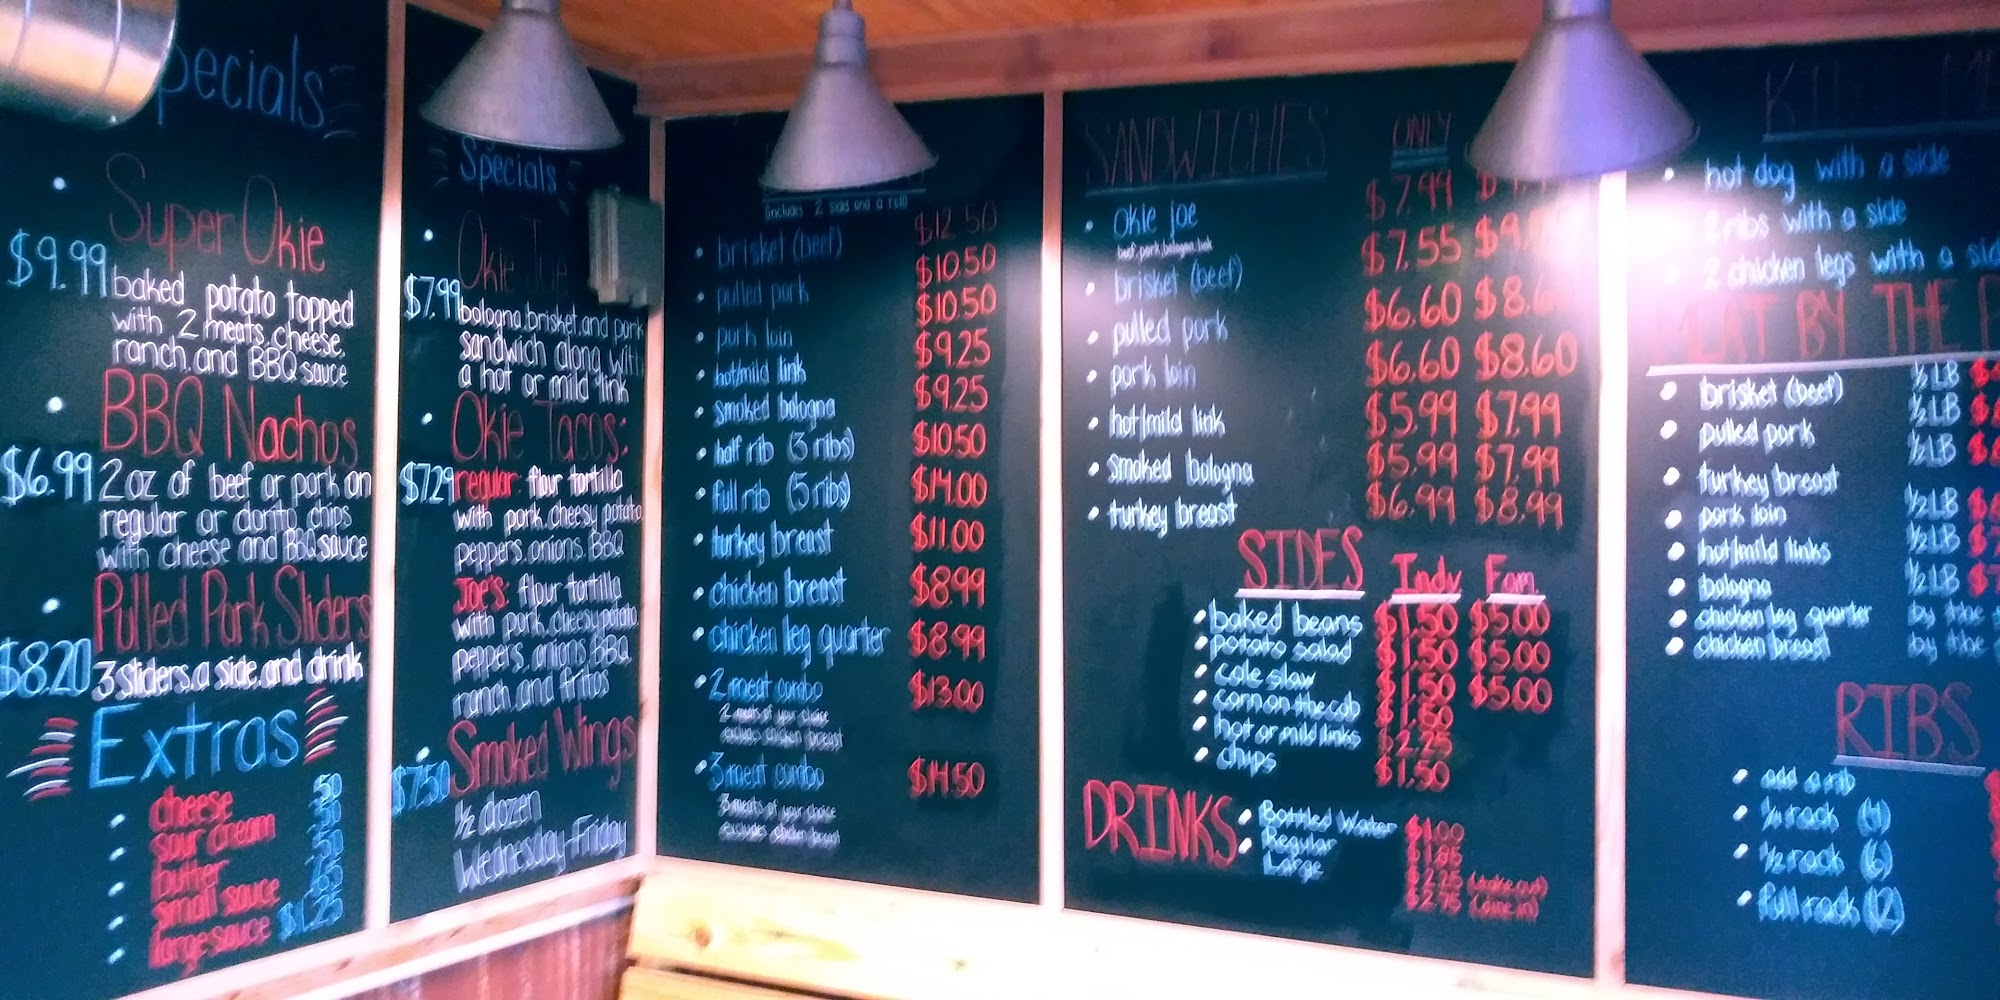 Specials
Super Okie
$9.99
baked potato topped
with 2 meats, cheese,
ranch, and BBQ sauce
BBQ Nachos
$6.99
2 oz of beef or pork on
regular or dorito chips
with cheese and BBQ sauce
Pulled Pork Sliders
$8.20
3 sliders, a side, and drink
Extras
cheese .50
sour cream
butter
small sauce
large sauce $1.25
Specials
Okie
$7.99
bologna, brisket, and pork
sandwich along with
a hot or mild link
Okie Tacos:
$7.29
regular: flour tortilla
with pork, cheesy potato,
peppers, onions, BBQ
Joe's: flour tortilla
with pork, cheesy potato,
peppers, onions, BBQ,
ranch, and fritos
Smoked Wings
$7.50
1/2 dozen
Wednesday-Friday
(includes 2 sides and a roll)
brisket (beef) $12.50
pulled pork $10.50
pork loin $10.50
hot/mild link $9.25
smoked bologna $9.25
half rib (3 ribs) $10.50
full rib (5 ribs) $14.00
turkey breast $11.00
chicken breast $8.99
chicken leg quarter $8.99
2 meat combo $13.00
2 meats of your choice
excludes chicken breast
3 meat combo $14.50
3 meats of your choice
excludes chicken breast
SANDWICHES ONLY
okie joe $7.99
beef, pork, bologna, link
brisket (beef) $7.55
pulled pork $6.60
pork loin $6.60 $8.60
hot/mild link $5.99 $7.99
smoked bologna $5.99 $7.99
turkey breast $6.99 $8.99
SIDES Indv Fam
baked beans $1.50 $5.00
potato salad $1.50 $5.00
cole slaw $1.50 $5.00
corn on the cob
hot or mild links $2.25
chips $1.50
DRINKS
Bottled Water $1.00
Regular $1.85
Large $2.25 (take out)
$2.75 (dine in)
hot dog with a side
2 ribs with a side
2 chicken legs with a side
MEAT BY THE
brisket (beef) 1/2 LB
pulled pork 1/2 LB
turkey breast 1/2 LB
pork loin 1/2 LB
hot/mild links 1/2 LB
bologna 1/2 LB
chicken leg quarter by the
chicken breast by the
RIBS
add a rib
rack (4)
1/2 rack (6)
full rack (12)